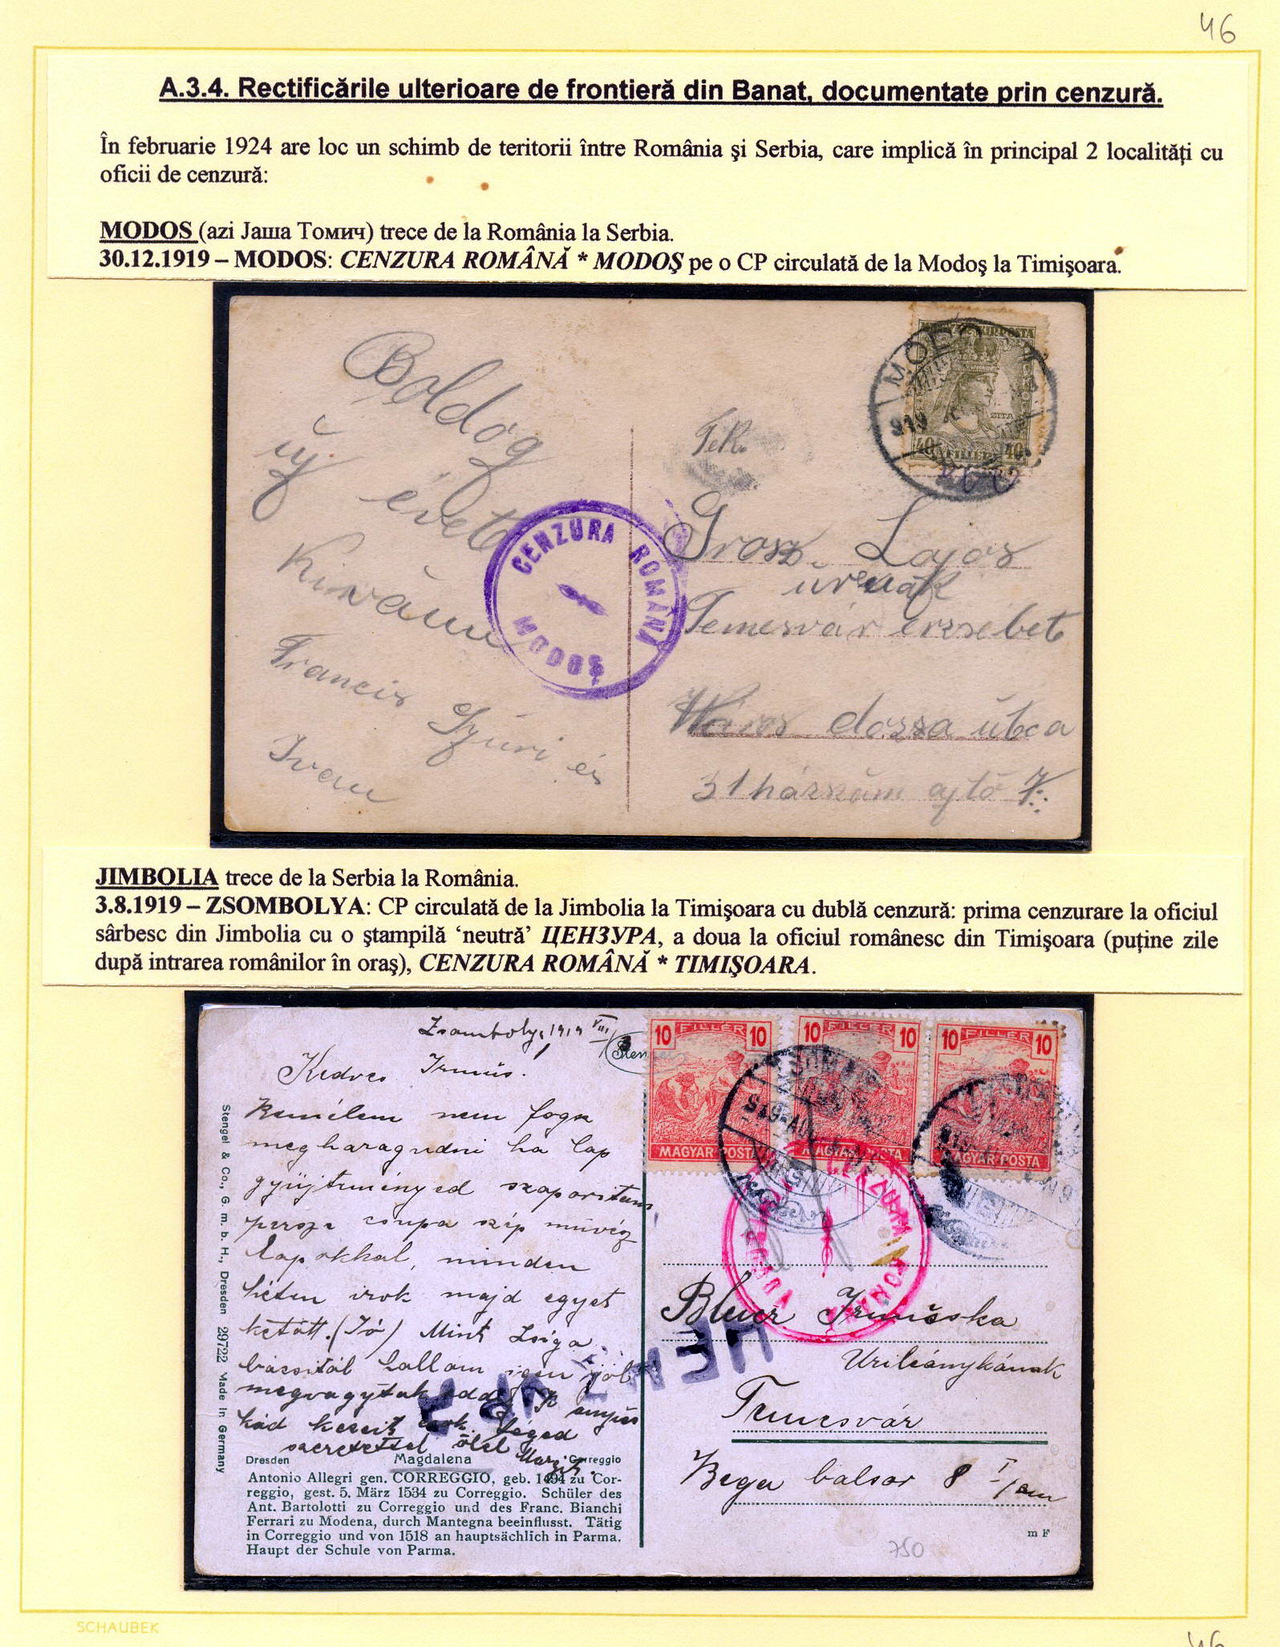 46
A.3.4. Rectificările ulterioare de frontieră din Banat, documentate prin cenzură.
În februarie 1924 are loc un schimb de teritorii între România şi Serbia, care implică în principal 2 localităţi cu
oficii de cenzură:
MODOS (azi Јаша Томич) trece de la România la Serbia.
30.12.1919 – MODOS: CENZURA ROMÂNĂ * MODOŞ pe o CP circulată de la Modoş la Timişoara.
Boldog
új
évet
Kiván
Francis
és
Ivan
CENZURA ROMÂNĂ
MODOŞ
MAGYAR KIR. POSTA
ZITA
40 FILLÉR 40
MODO
919
Tek.
Grosz Lajos
urnak
Temesvár erzsébet
dozsa utca
31 házszám ajtó 7.
JIMBOLIA trece de la Serbia la România.
3.8.1919 – ZSOMBOLYA: CP circulată de la Jimbolia la Timişoara cu dublă cenzură: prima cenzurare la oficiul
sârbesc din Jimbolia cu o ştampilă ‘neutră’ ЦЕНЗУРА, a doua la oficiul românesc din Timişoara (puţine zile
după intrarea românilor în oraş), CENZURA ROMÂNĂ * TIMIŞOARA.
Zsombolya, 1919 VIII/3
Kedves Irmus!
Remélem nem fogsz
megharagudni ha lap
gyüjteményed szaporitom
persze csupa szép müvész
lapokkal, minden
héten irok majd egyet
kettőt. (Jó) Mint Zsiga
bácsitól hallom igen jól
megvagytok
Téged
szeretettel ölel
10 FILLER 10
MAGYAR POSTA
10 FILLER 10
MAGYAR POSTA
10 FILLER 10
MAGYAR POSTA
ЦЕНЗУРА
Irmuska
Urileánykának
Temesvár
Bega balsor 8 I/em
Stengel & Co., G. m. b. H., Dresden 29722 Made in Germany
Dresden Magdalena Correggio
Antonio Allegri gen. CORREGGIO, geb. 1494 zu Cor-
reggio, gest. 5. März 1534 zu Correggio. Schüler des
Ant. Bartolotti zu Correggio und des Franc. Bianchi
Ferrari zu Modena, durch Mantegna beeinflusst. Tätig
in Correggio und von 1518 an hauptsächlich in Parma.
Haupt der Schule von Parma.
m F
750
SCHAUBEK
46